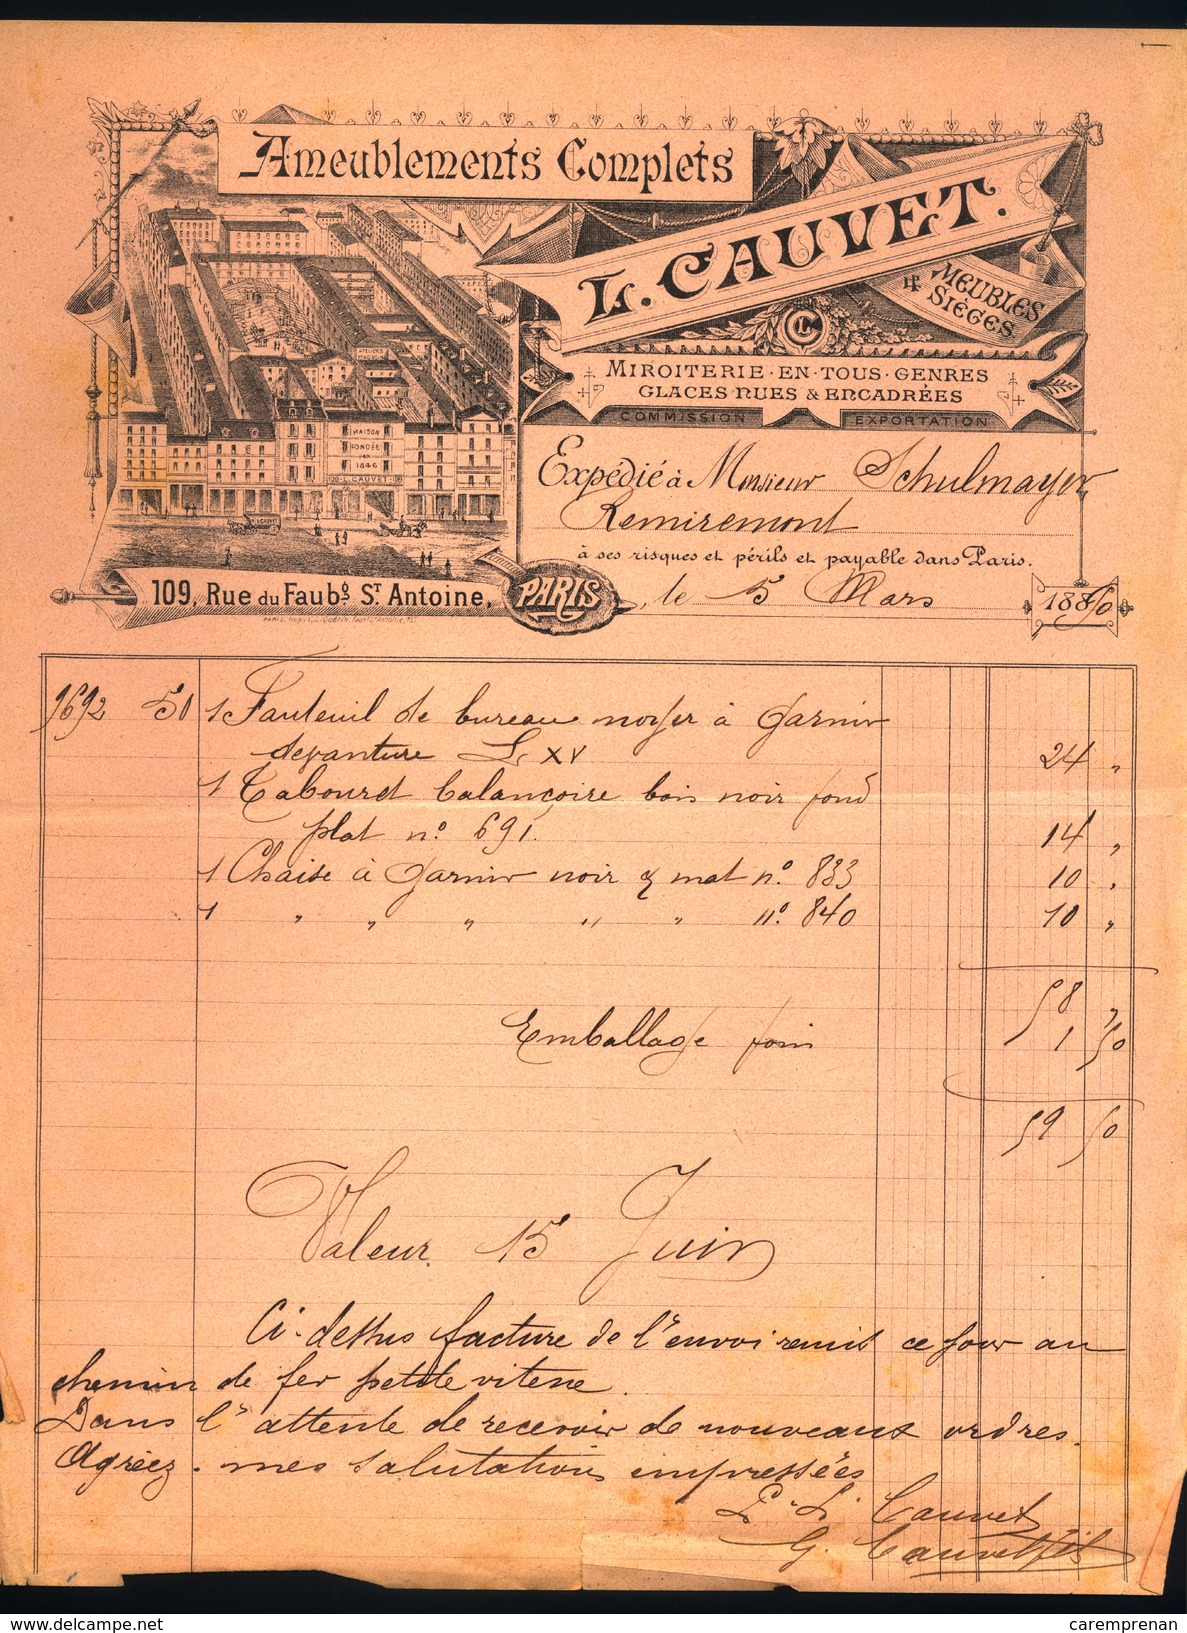 Ameublements Complets
L. CAUVET.
MEUBLES
& SIÈGES
CL
MIROITERIE·EN·TOUS·GENRES
GLACES NUES & ENCADRÉES
COMMISSION EXPORTATION
MAISON
FONDÉE
EN
1846
109 L. CAUVET 109
Expédié à Monsieur Schulmayer
Remiremont
à ses risques et périls et payable dans Paris.
109, Rue du Faubg. ST Antoine, PARIS, le 5 Mars 1890
9692 50 1 Fauteuil de bureau noyer à Garnir
devanture L XV 24 "
1 Tabouret balançoire bois noir fond
plat no. 691. 14 "
1 Chaise à Garnir noir & mat no. 833 10 "
1 " " " " " no. 840 10 "
58 "
Emballage foin 1 50
59 50
Valeur 15 Juin
Ci-dessus facture de l'envoi remis ce jour au
chemin de fer petite vitesse.
Dans l'attente de recevoir de nouveaux ordres.
Agréez. mes salutations empressées
L. Cauvet
G. Cauvet fils
delcampe.net
caremprenan